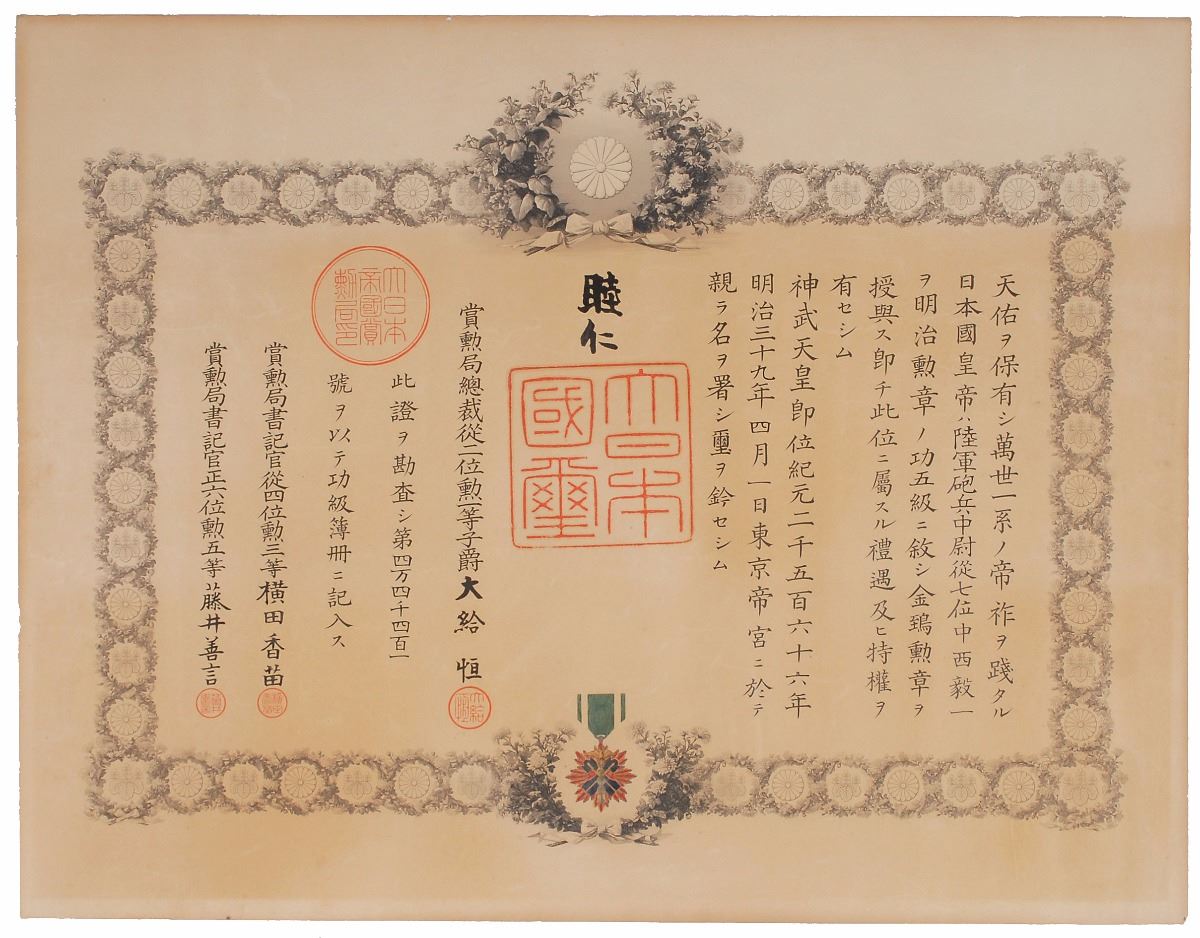 天佑ヲ保有シ萬世一系ノ帝祚ヲ踐タル
日本國皇帝ハ陸軍砲兵中尉從七位中西毅一
ヲ明治勲章ノ功五級ニ敘シ金鵄勲章ヲ
授與ス卽チ此位ニ屬スル禮遇及ヒ特權ヲ
有セシム
神武天皇卽位紀元二千五百六十六年
明治三十九年四月一日東京帝宮ニ於テ
親ラ名ヲ署シ璽ヲ鈐セシム
睦仁
大日本
國璽
賞勲局總裁從二位勲一等子爵大給恒
此證ヲ勘査シ第四万四千四百一
號ヲ以テ功級簿冊ニ記入ス
大日本
帝國賞
勲局印
賞勲局書記官從四位勲三等橫田香苗
賞勲局書記官正六位勲五等藤井善言